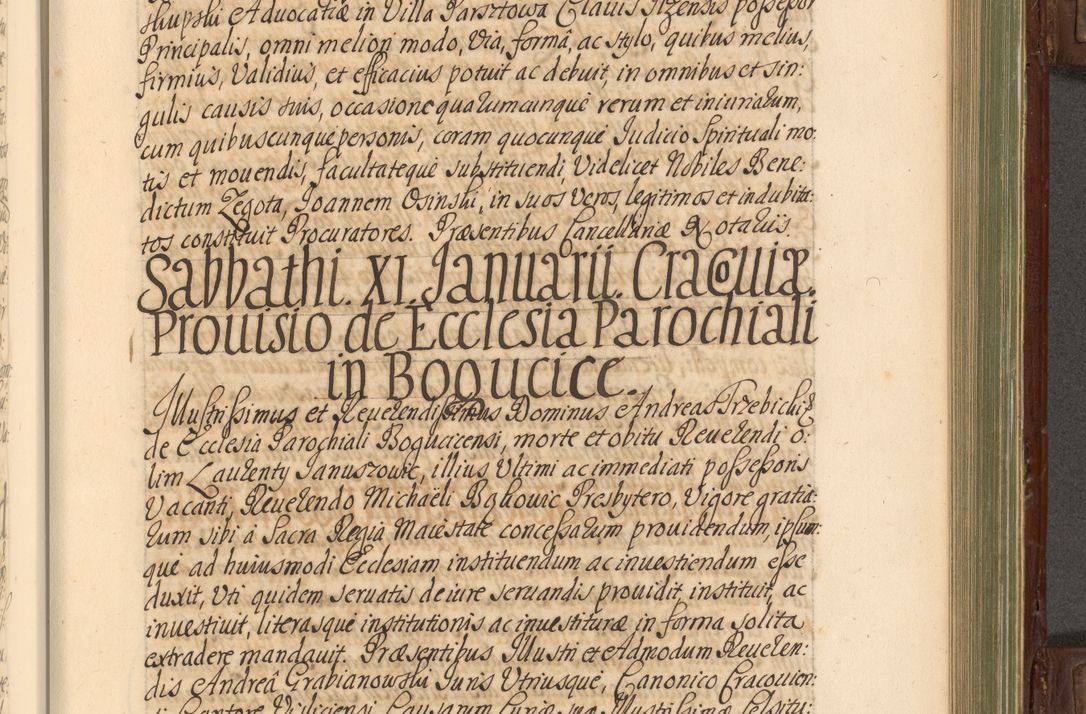 Skupski Advocatiæ in Villa Parsztowa Clavis Ilzensis possessor
Principalis, omni meliori modo, Via, formâ, ac stylo, quibus melius,
firmius, Validius, et efficacius potuit ac debuit, in omnibus et sin:
gulis causis suis, occasione quarumcunque rerum et iniuriarum,
cum quibuscunque personis, coram quocunque Iudicio Spirituali mo:
tis et mouendis, facultateque substituendi Videlicet Nobiles Bene:
dictum Zegota, Joannem Osinski, in suos veros, legitimos et indubita:
tos constituit Procuratores. Præsentibus Cancellariæ Notariis.
Sabbathi. XI. Januarii. Cracouiæ.
Prouisio de Ecclesia Parochiali
in Bogucice.
Illustrissimus et Reuerendissimus Dominus Andreas Trzebicki
de Ecclesia Parochiali Bogucicensi, morte et obitu Reuerendi o:
lim Laurenty Januszowic, illius Ultimi ac immediati possessoris
Vacanti, Reuerendo Michaëli Bąkowic Presbytero, Vigore gratia:
rum sibi á Sacra Regia Maiestate concessarum prouidendum, ipsum:
que ad huiusmodi Ecclesiam instituendum ac inuestiendum esse
duxit, Uti quidem seruatis de iure seruandis prouidit, instituit, ac
inuestiuit, literasque institutionis ac inuestituræ in forma solita
extradere mandauit. Præsentibus Illustri et Admodum Reueren:
dis Andreâ Grabianowski Iuris Utriusque, Canonico Cracouien:
Cantore Causarum Curiæ suæ Illustrissimæ Celsitu: